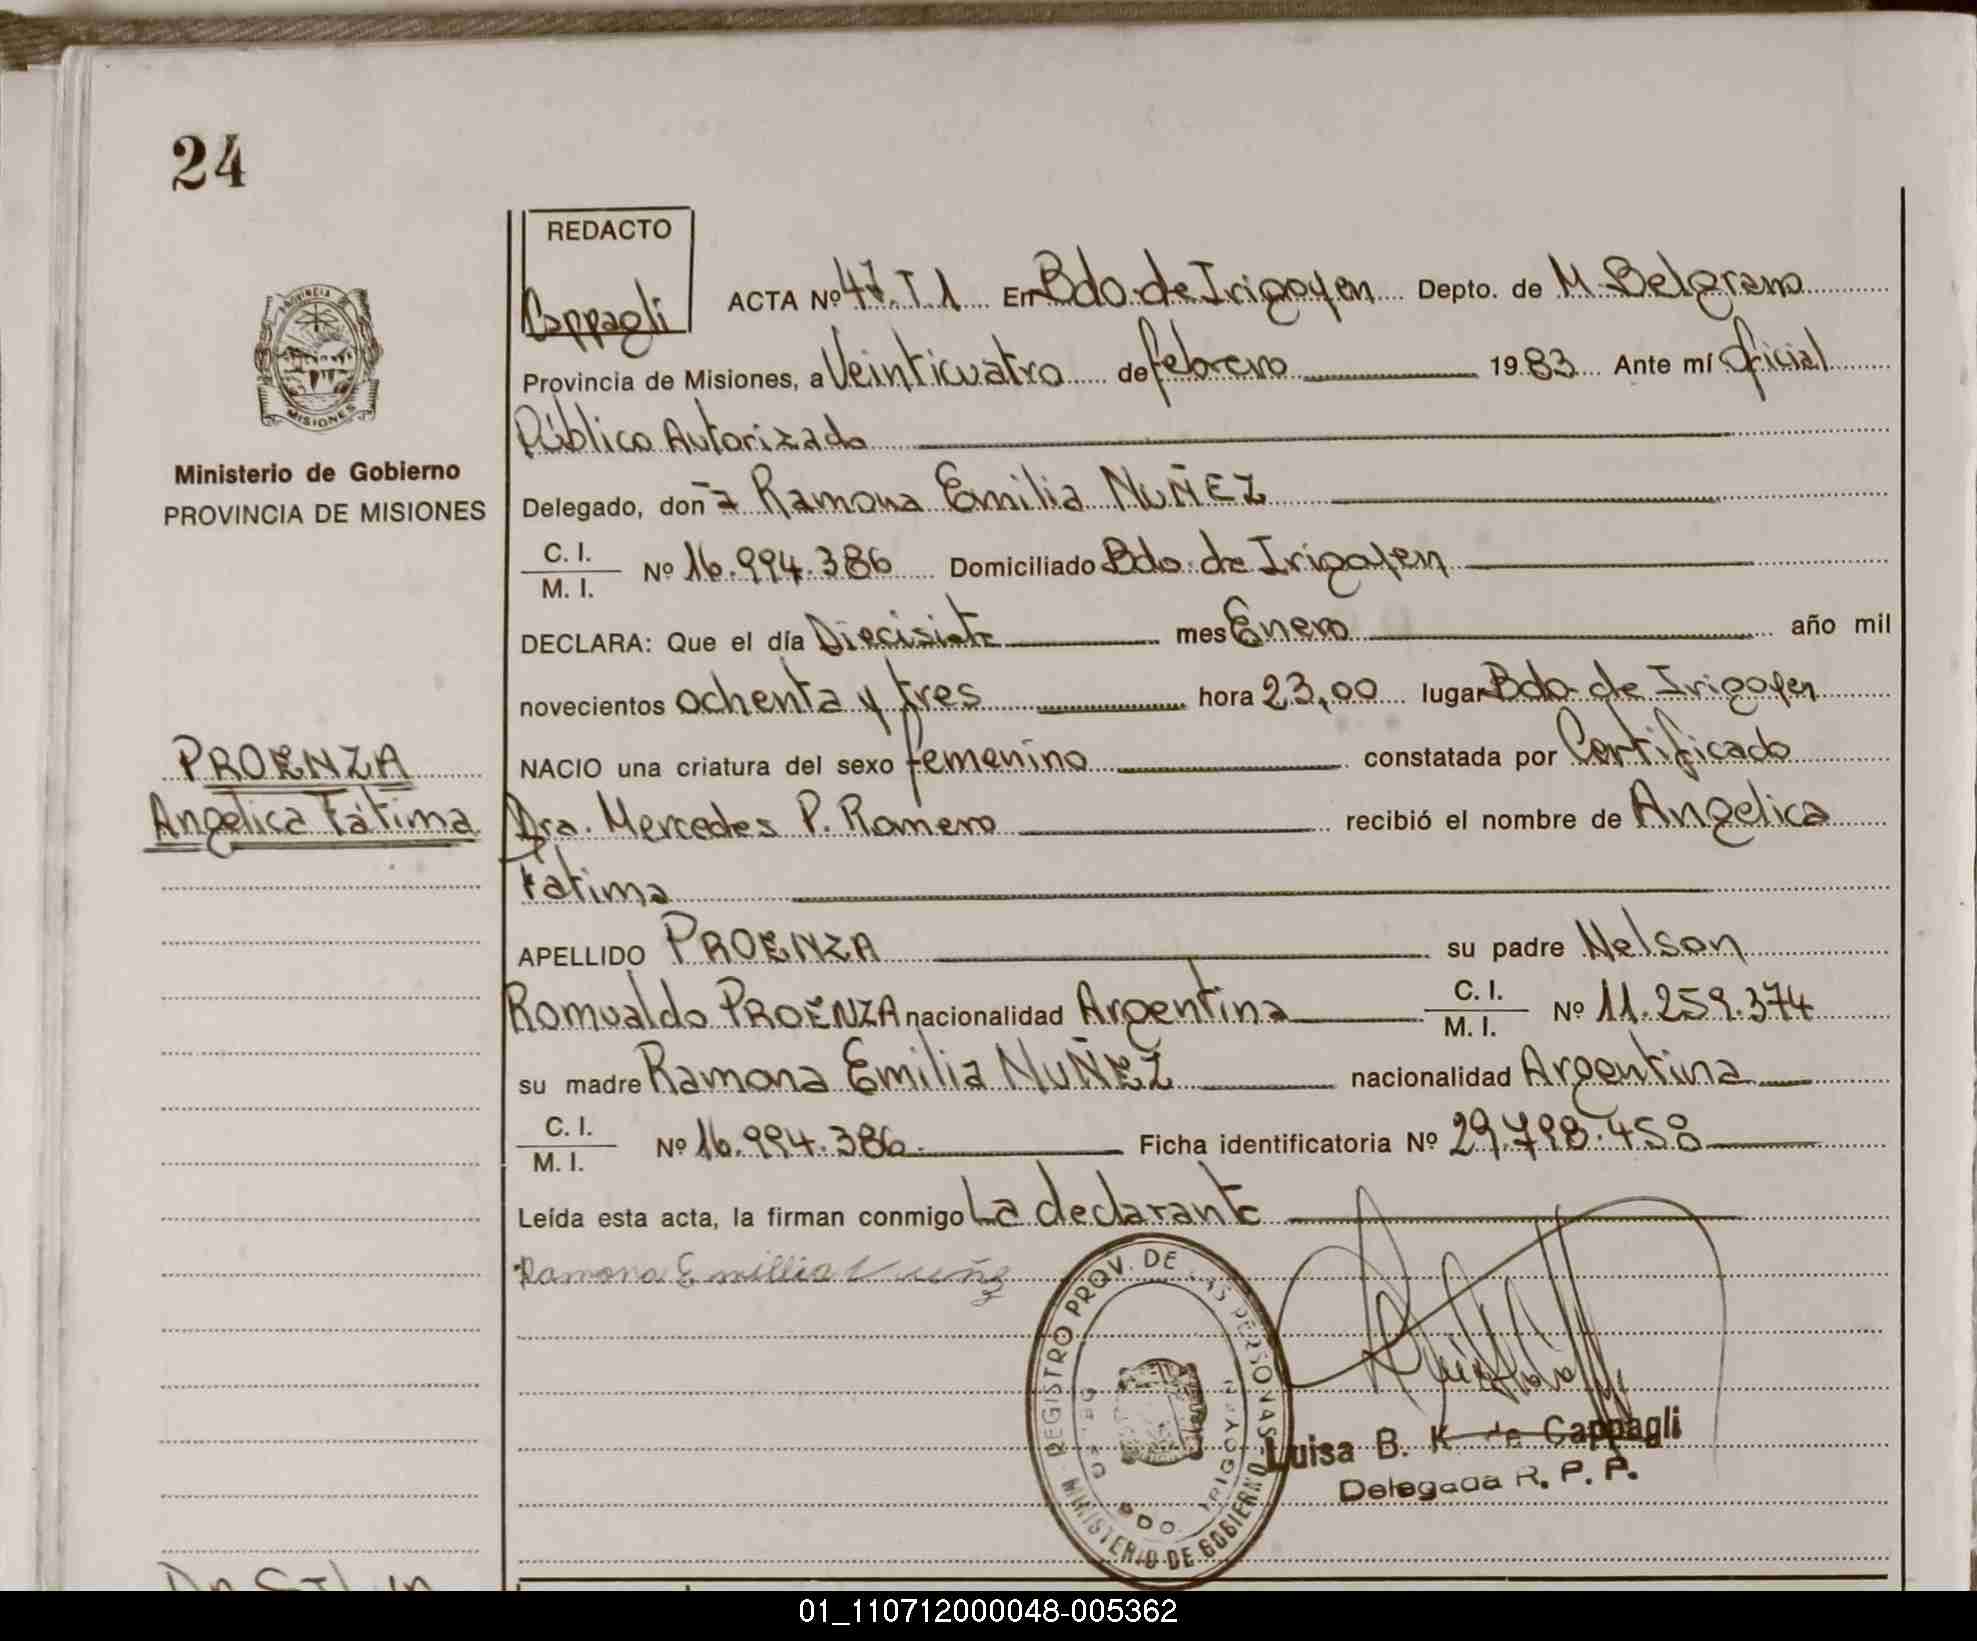 24
REDACTO
Cappagli
ACTA Nº 47. T 1 En Bdo. de Irigoyen Depto. de M. Belgrano
Provincia de Misiones, a Veinticuatro de febrero 1983 Ante mí Oficial
Público Autorizado
Delegado, don ña Ramona Emilia NUÑEZ
C. I.
M. I. Nº 16.994.386 Domiciliado Bdo. de Irigoyen
DECLARA: Que el día Diecisiete mes Enero año mil
novecientos ochenta y tres hora 23,00 lugar Bdo. de Irigoyen
NACIO una criatura del sexo femenino constatada por Certificado
Dra. Mercedes P. Romero recibió el nombre de Angelica
Fatima
APELLIDO PROENZA su padre Nelson
Romualdo PROENZA nacionalidad Argentina C. I.
M. I. Nº 11.259.374
su madre Ramona Emilia NUÑEZ nacionalidad Argentina
C. I.
M. I. Nº 16.994.386. Ficha identificatoria Nº 29.798.458
Leída esta acta, la firman conmigo La declarante
Ramona Emillia Nuñez
PROVINCIA DE
MISIONES
Ministerio de Gobierno
PROVINCIA DE MISIONES
PROENZA
Angelica Fátima
REGISTRO PROV. DE LAS PERSONAS
MINISTERIO DE GOBIERNO
BDO. IRIGOYEN
Luisa B. K de Cappagli
Delegada R. P. P.
01_110712000048-005362